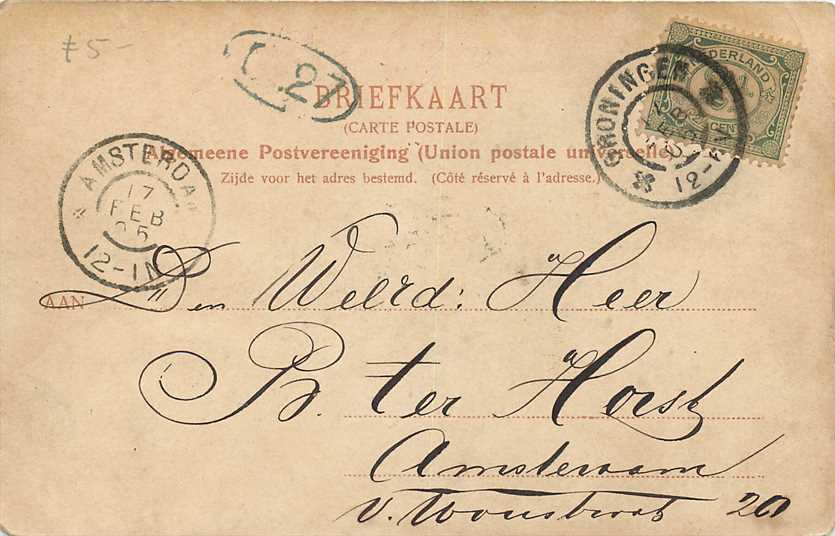 £5-
L 27
BRIEFKAART
(CARTE POSTALE)
Algemeene Postvereeniging (Union postale universelle)
Zijde voor het adres bestemd. (Côté réservé à l'adresse.)
NEDERLAND
CENT
GRONINGEN
12-
AMSTERDA
17
FEB
05
12-1N
AAN
Den Weled: Heer
B. ter Horst
Amsterdam
20